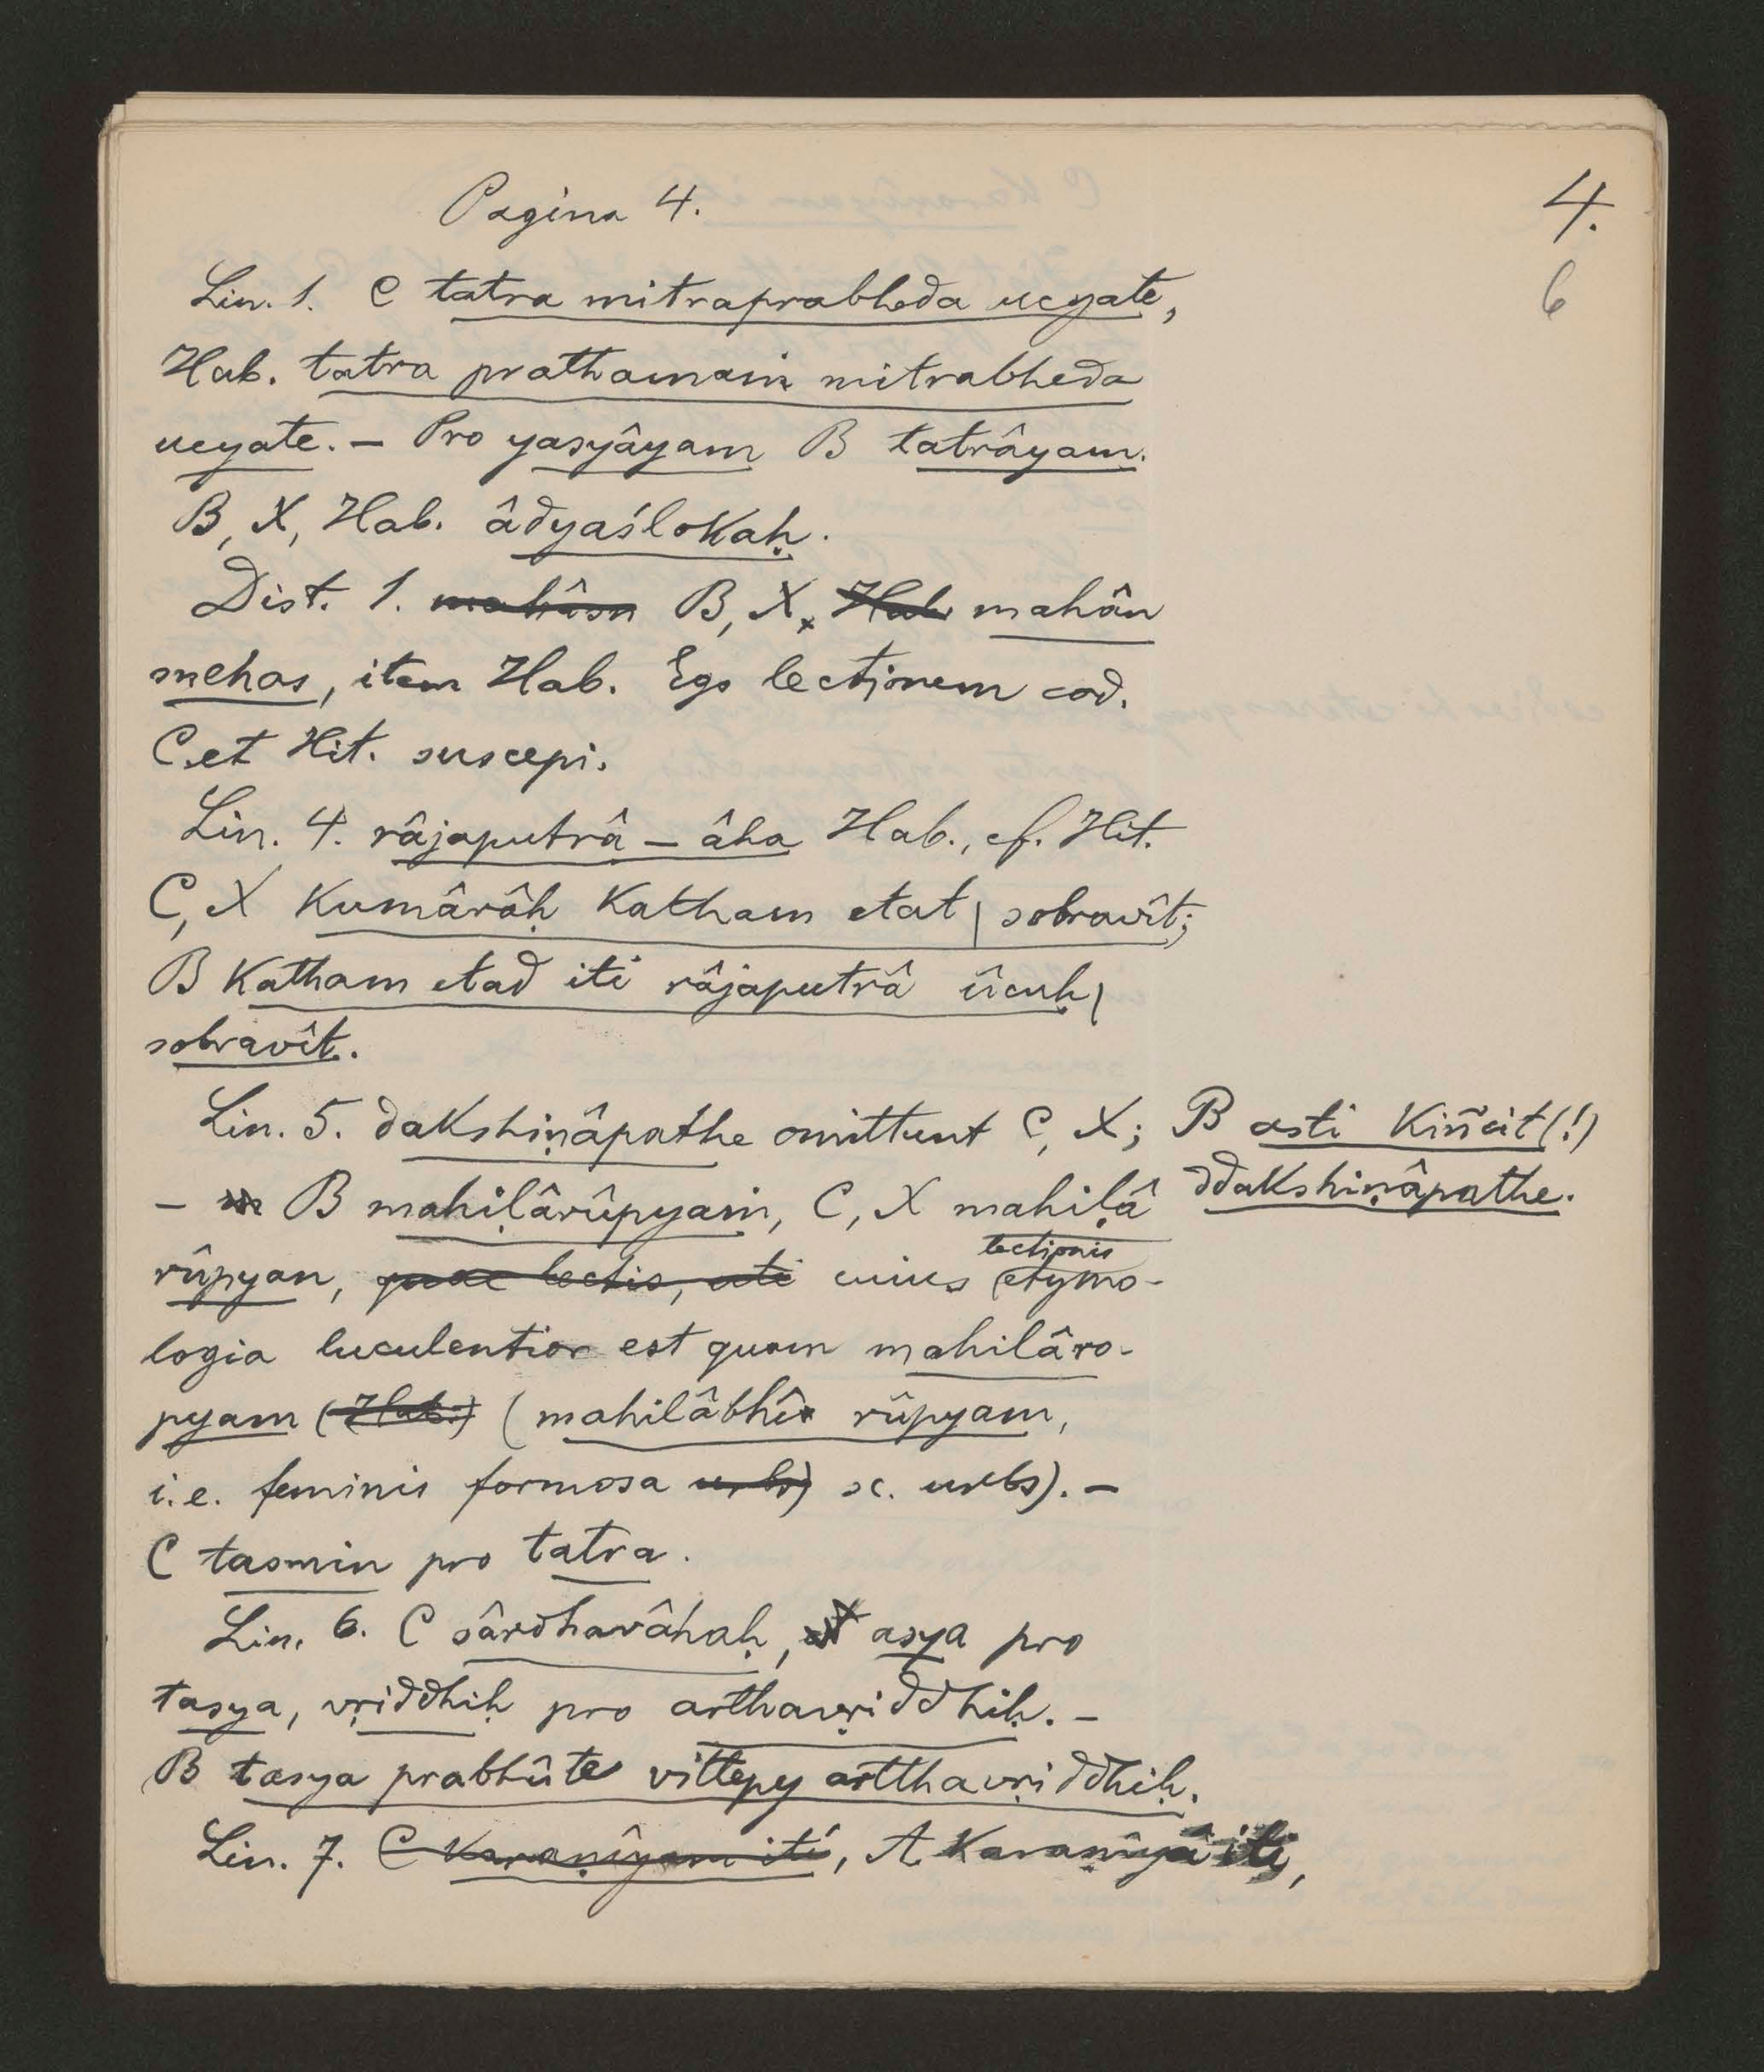 Pagina 4.
4.
6
Lin. 1. C tatra mitraprabheda ucyate,
Hab. tatra prathamaṁ mitrabheda
ucyate. – Pro yasyâyam B tatrâyam.
B, X, Hab. âdyaślokaḥ.
Dist. 1. B, X, Hab mahân
snehas, item Hab. Ego lectionem cod.
C et Hit. suscepi.
Lin. 4. râjaputrâ – âha Hab., cf. Hit.
C, X Kumârâḥ Katham etat | sobravît;
B Katham etad iti râjaputrâ ûcuḥ |
sobravît.
Lin. 5. dakshiṇâpathe omittunt C, X; B asti Kiñcit (!)
ddakshiṇâpathe.
– B mahiḷârûpyaṁ, C, X mahiḷâ
rûpyan, quae lectio, uti cuius lectionis etymo-
logia luculentior est quam mahilâro-
pyam (Hab.) (mahilâbhî rûpyam,
i.e. feminis formosa urbs) sc. urbs). –
C tasmin pro tatra.
Lin. 6. C sârdhavâhaḥ, asya pro
tasya, vṛiddhiḥ pro arthavṛiddhiḥ. –
B tasya prabhûte vittepy artthavṛiddhiḥ.
Lin. 7. C Karaṇîyam iti, A Karaṇîyâ iti,